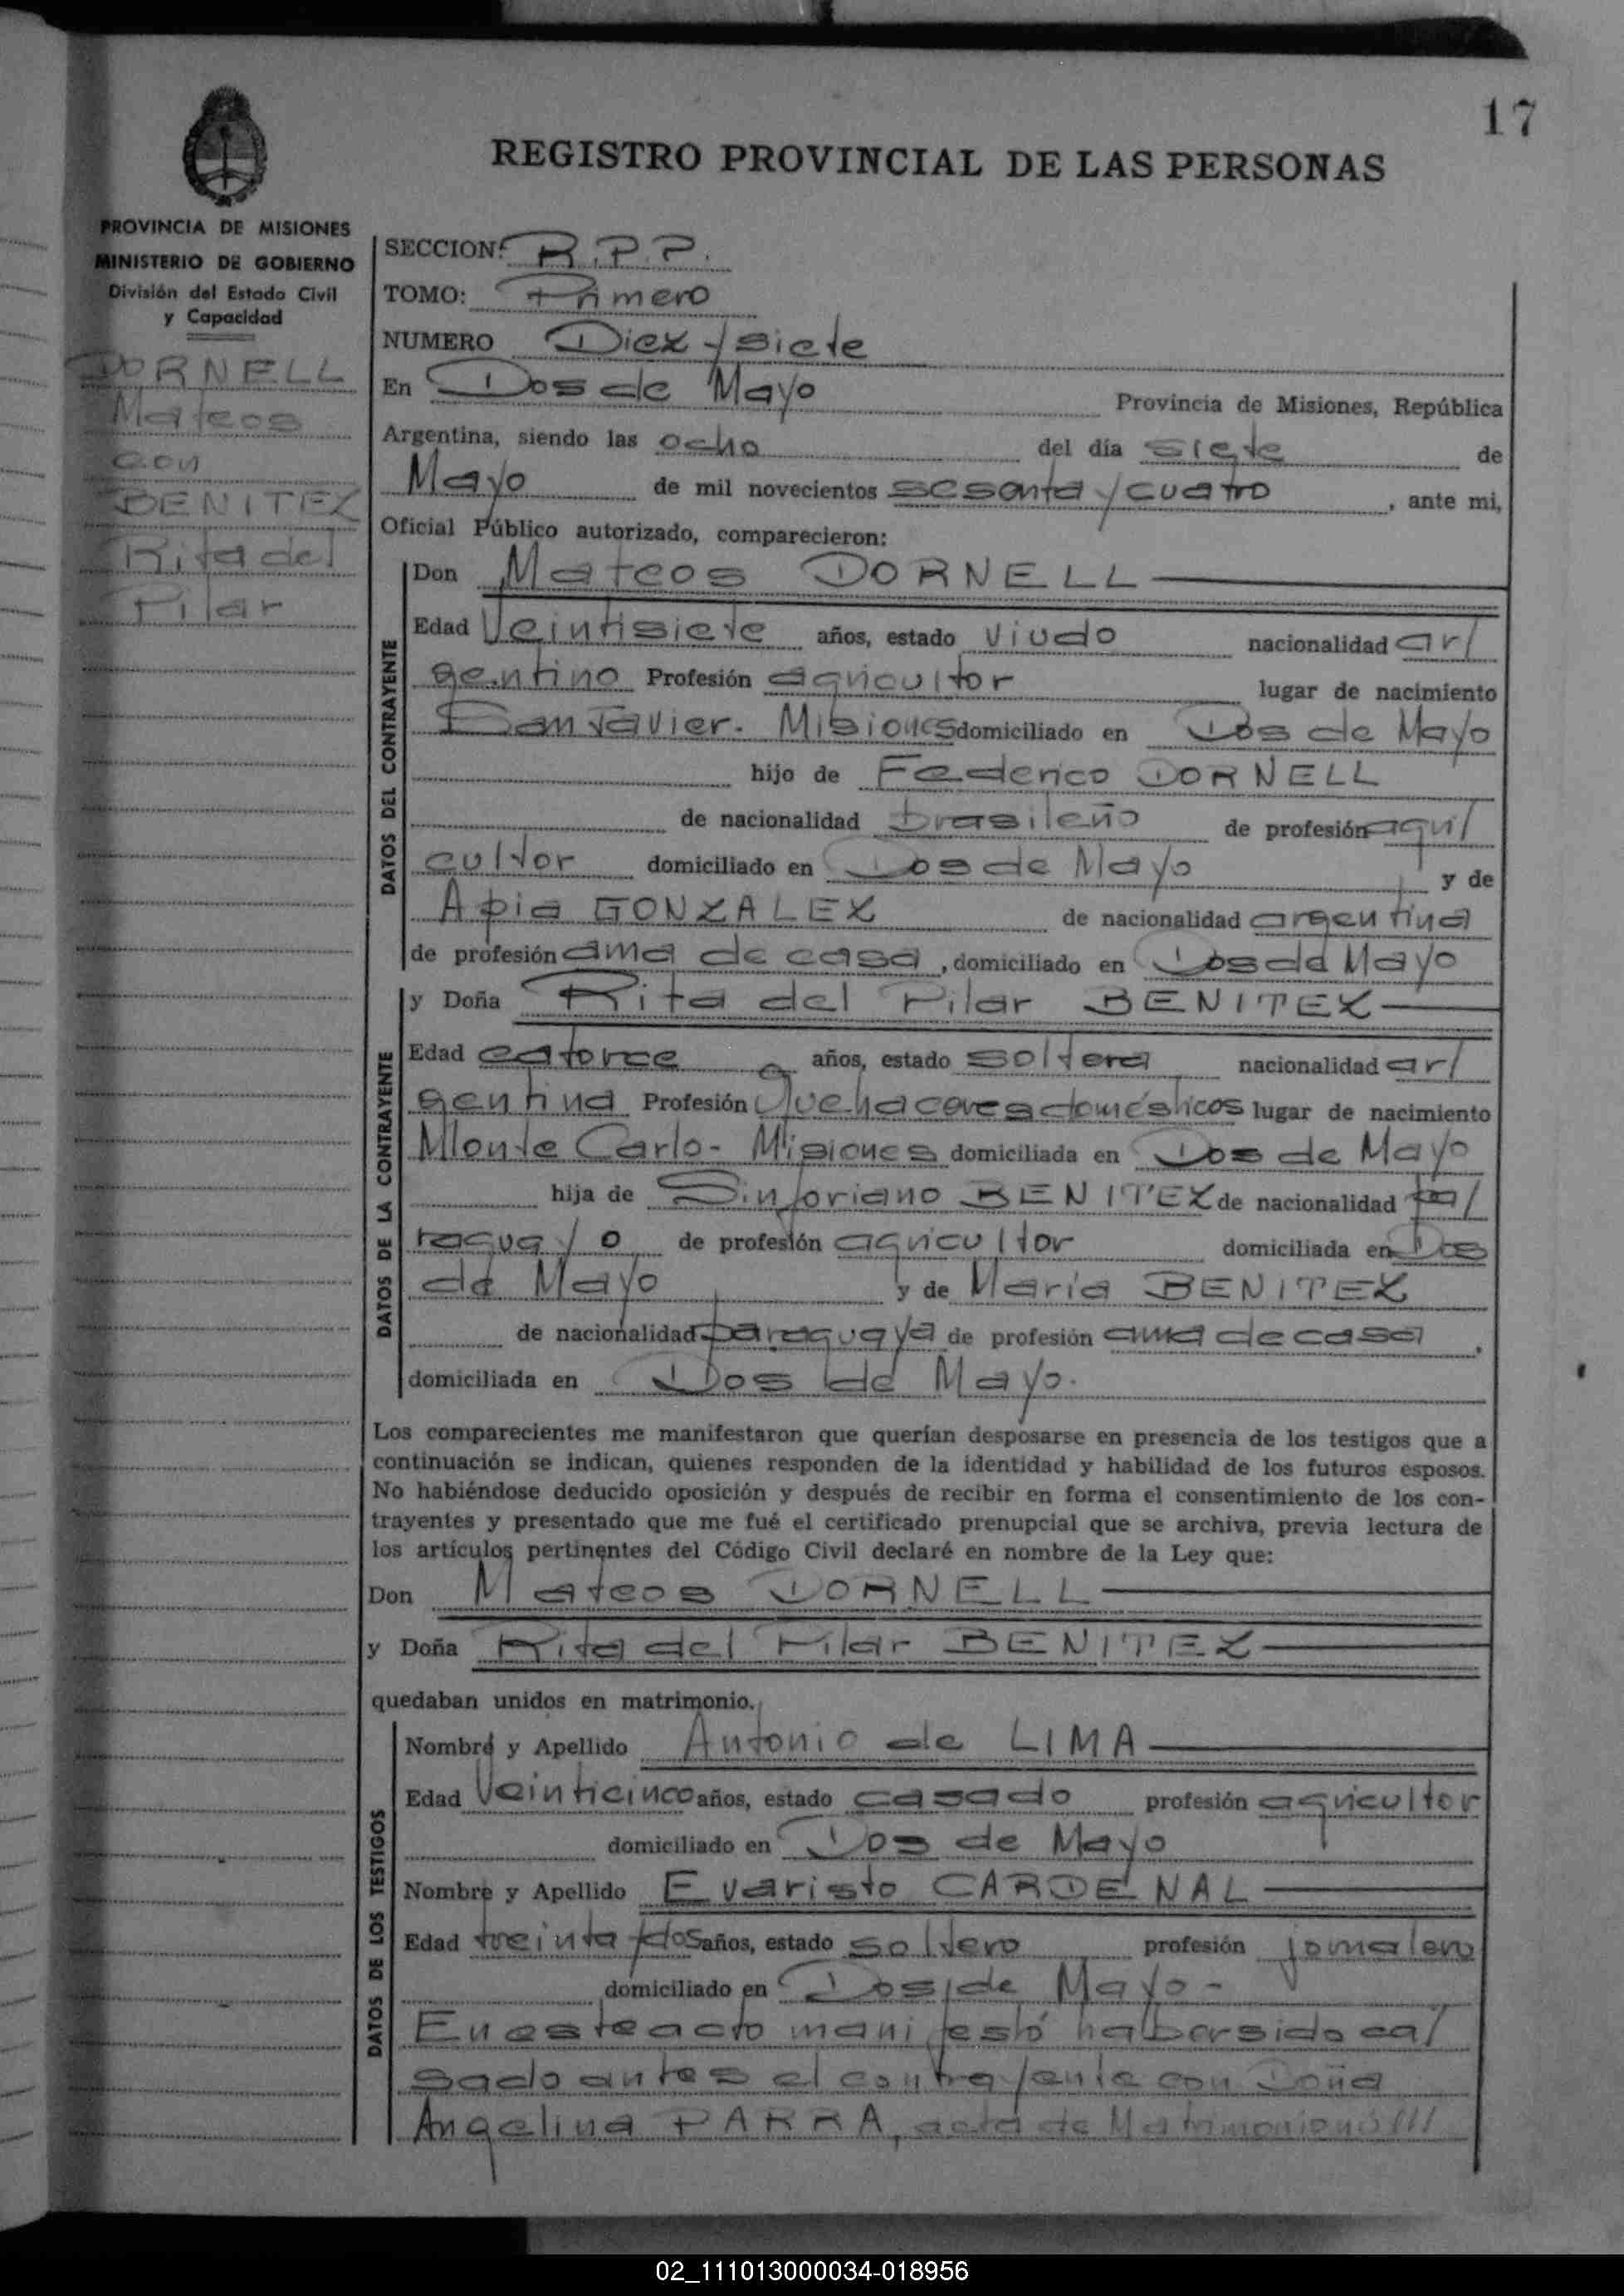 17
REGISTRO PROVINCIAL DE LAS PERSONAS
PROVINCIA DE MISIONES
MINISTERIO DE GOBIERNO
División del Estado Civil
y Capacidad
DORNELL
Mateos
con
BENITEZ
Rita del
Pilar
SECCION: R.P.P.
TOMO: Primero
NUMERO Diez y siete
En Dos de Mayo Provincia de Misiones, República
Argentina, siendo las ocho del día siete de
Mayo de mil novecientos sesenta y cuatro, ante mi,
Oficial Público autorizado, comparecieron:
DATOS DEL CONTRAYENTE
Don Mateos DORNELL
Edad Veintisiete años, estado viudo nacionalidad ar/
gentino Profesión agricultor lugar de nacimiento
San Javier. Misiones domiciliado en Dos de Mayo
hijo de Federico DORNELL
de nacionalidad brasileño de profesión agri/
cultor domiciliado en Dos de Mayo y de
Apia GONZALEZ de nacionalidad argentina
de profesión ama de casa, domiciliado en Dos de Mayo
DATOS DE LA CONTRAYENTE
y Doña Rita del Pilar BENITEZ
Edad catorce años, estado soltera nacionalidad ar/
gentina Profesión Quehaceres domésticos lugar de nacimiento
Monte Carlo - Misiones domiciliada en Dos de Mayo
hija de Sinforiano BENITEZ de nacionalidad pa/
raguayo de profesión agricultor domiciliada en Dos
de Mayo y de María BENITEZ
de nacionalidad paraguaya de profesión ama de casa,
domiciliada en Dos de Mayo.
Los comparecientes me manifestaron que querían desposarse en presencia de los testigos que a
continuación se indican, quienes responden de la identidad y habilidad de los futuros esposos.
No habiéndose deducido oposición y después de recibir en forma el consentimiento de los con-
trayentes y presentado que me fué el certificado prenupcial que se archiva, previa lectura de
los artículos pertinentes del Código Civil declaré en nombre de la Ley que:
Don Mateos DORNELL
y Doña Rita del Pilar BENITEZ
quedaban unidos en matrimonio.
DATOS DE LOS TESTIGOS
Nombre y Apellido Antonio de LIMA
Edad Veinticinco años, estado casado profesión agricultor
domiciliado en Dos de Mayo
Nombre y Apellido Evaristo CARDENAL
Edad treinta y dos años, estado soltero profesión jornalero
domiciliado en Dos de Mayo -
En este acto manifestó haber sido ca/
sado antes el contrayente con Doña
Angelina PARRA, acta de Matrimonio nº ///
02_111013000034-018956